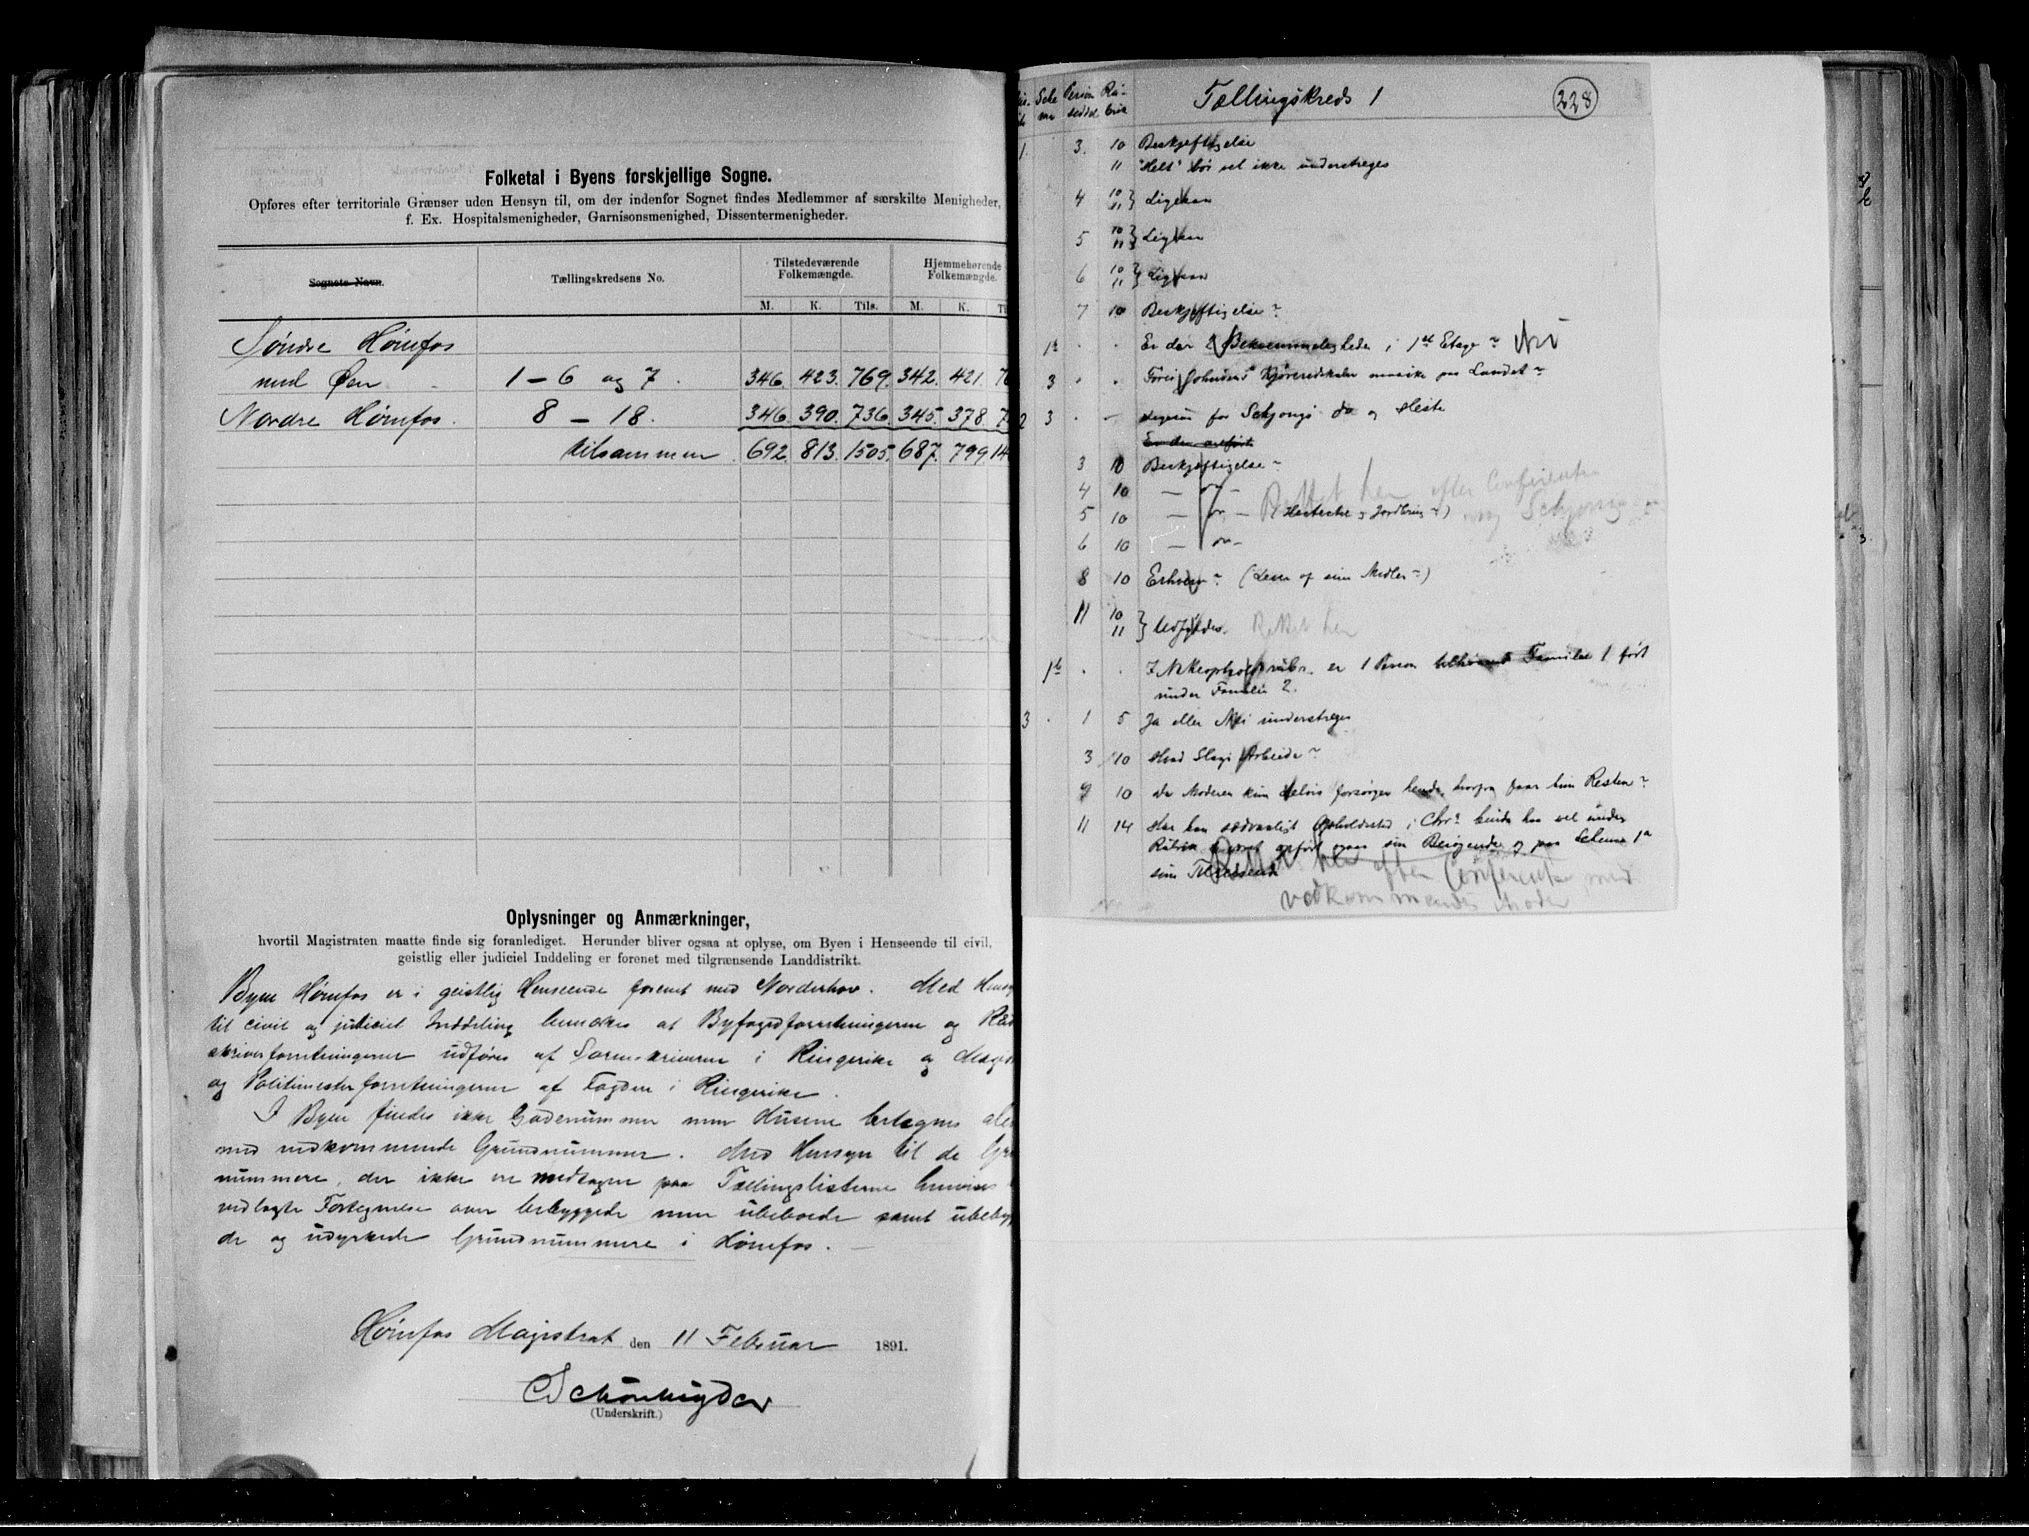 Folketal i Byens forskjellige Sogne.
Opføres efter territoriale Grænser uden Hensyn til, om der indenfor Sognet findes Medlemmer af særskilte Menigheder,
f. Ex. Hospitalsmenigheder, Garnisonsmenighed, Dissentermenigheder.
Sognets Navn. Tællingskredsens No. Tilstedeværende Folkemængde. Hjemmehørende Folkemængde.
M. K. Tils. M. K.
Søndre Hønefos
med Øen 1 - 6 og 7. 346. 423. 769. 342. 421.
Nordre Hønefos. 8 - 18. 346. 390. 736. 345. 378
tilsammen 692. 813. 1505. 687. 799.
Oplysninger og Anmærkninger,
hvortil Magistraten maatte finde sig foranlediget. Herunder bliver ogsaa at oplyse, om Byen i Henseende til civil,
geistlig eller judiciel Inddeling er forenet med tilgrænsende Landdistrikt.
Byen Hønefos er i geistlig Henseende forenet med Norderhov. Med
til civil og judiciel Inddeling bemærkes at Byfogedforretningerne og
skriverforretningerne udføres af Sorenskriveren i Ringerike og
og Politimesterforretningerne af Fogden i Ringerike.
I Byen findes ikke Gadenummer men Husene betegnes
med vedkommende Grundnummer. Med Hensyn til de
nummere, der ikke ere medtagne paa Tællingslisterne henvises
vedlagte Fortegnelse over bebyggede men ubeboede samt
de og udyrkede Grundnummere i Hønefos.
Hønefos Magistrat den 11 Februar 1891.
(Underskrift.)
Tællingskreds 1 228
Sche ma Person seddel Ru- brik
1. 3. 10 Beskjeftigelse
11 "Helt" bør vel ikke understreges
4 10 11 } Ligesaa
5 10 11 } Ligesaa
6 10 11 } Ligesaa
7 10 Beskjeftigelse?
1a Er der 2 Bekvemmeligheder i 1st Etage? Nei
3 Kjøreredskaber maaske paa Landet?
2 3 for Schjongs do og Heste
3 10 Beskjeftigelse?
4 10 — do —
5 10 — do —
6 10 — do —
8 10 Erhverv? (Lever af sine Midler?)
11 10 11 } Udfyldes. Rettet her
1b er 1 Person tilhørende Familie 1 ført
under Familie 2.
3 1 5 Ja eller Nei understreges
3 10 Hvad Slags Arbeide?
9 10 Da Moderen kun delvis forsørger hende, hvorfra faar hun Resten?
11 14 Har han sædvanligt Opholdssted i Chr.a burde han vel under
Rubrik været opført som Besøgende og paa Schema 1a
som Tilstedeværende
Rettet her efter Conference med
vedkommendes Moder